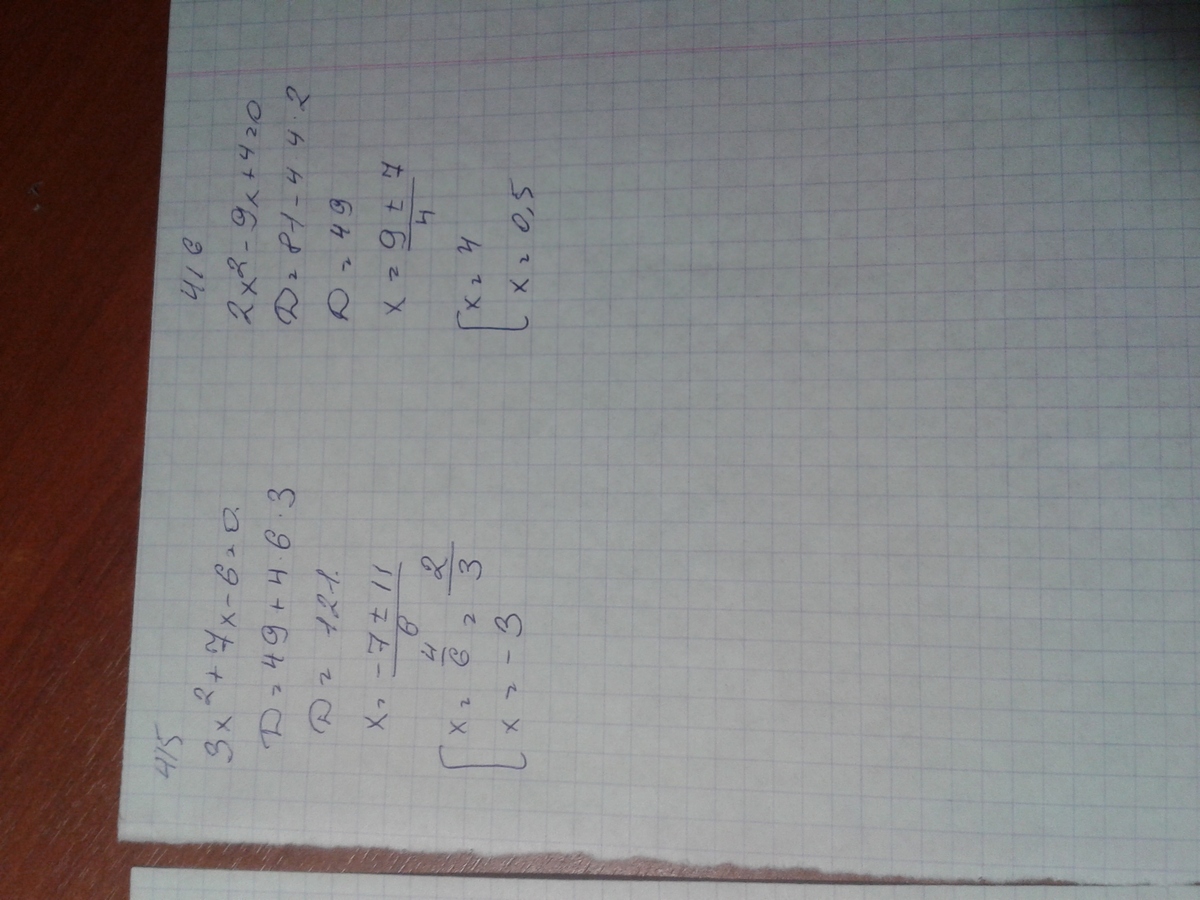 415
3x² + 7x - 6 = 0.
D = 49 + 4 · 6 · 3
D = 121.
x = (-7 ± 11)/6
[ x = 4/6 = 2/3
x = -3
416
2x² - 9x + 4 = 0
D = 81 - 4 · 4 · 2
D = 49
x = (9 ± 7)/4
[ x = 4
x = 0,5